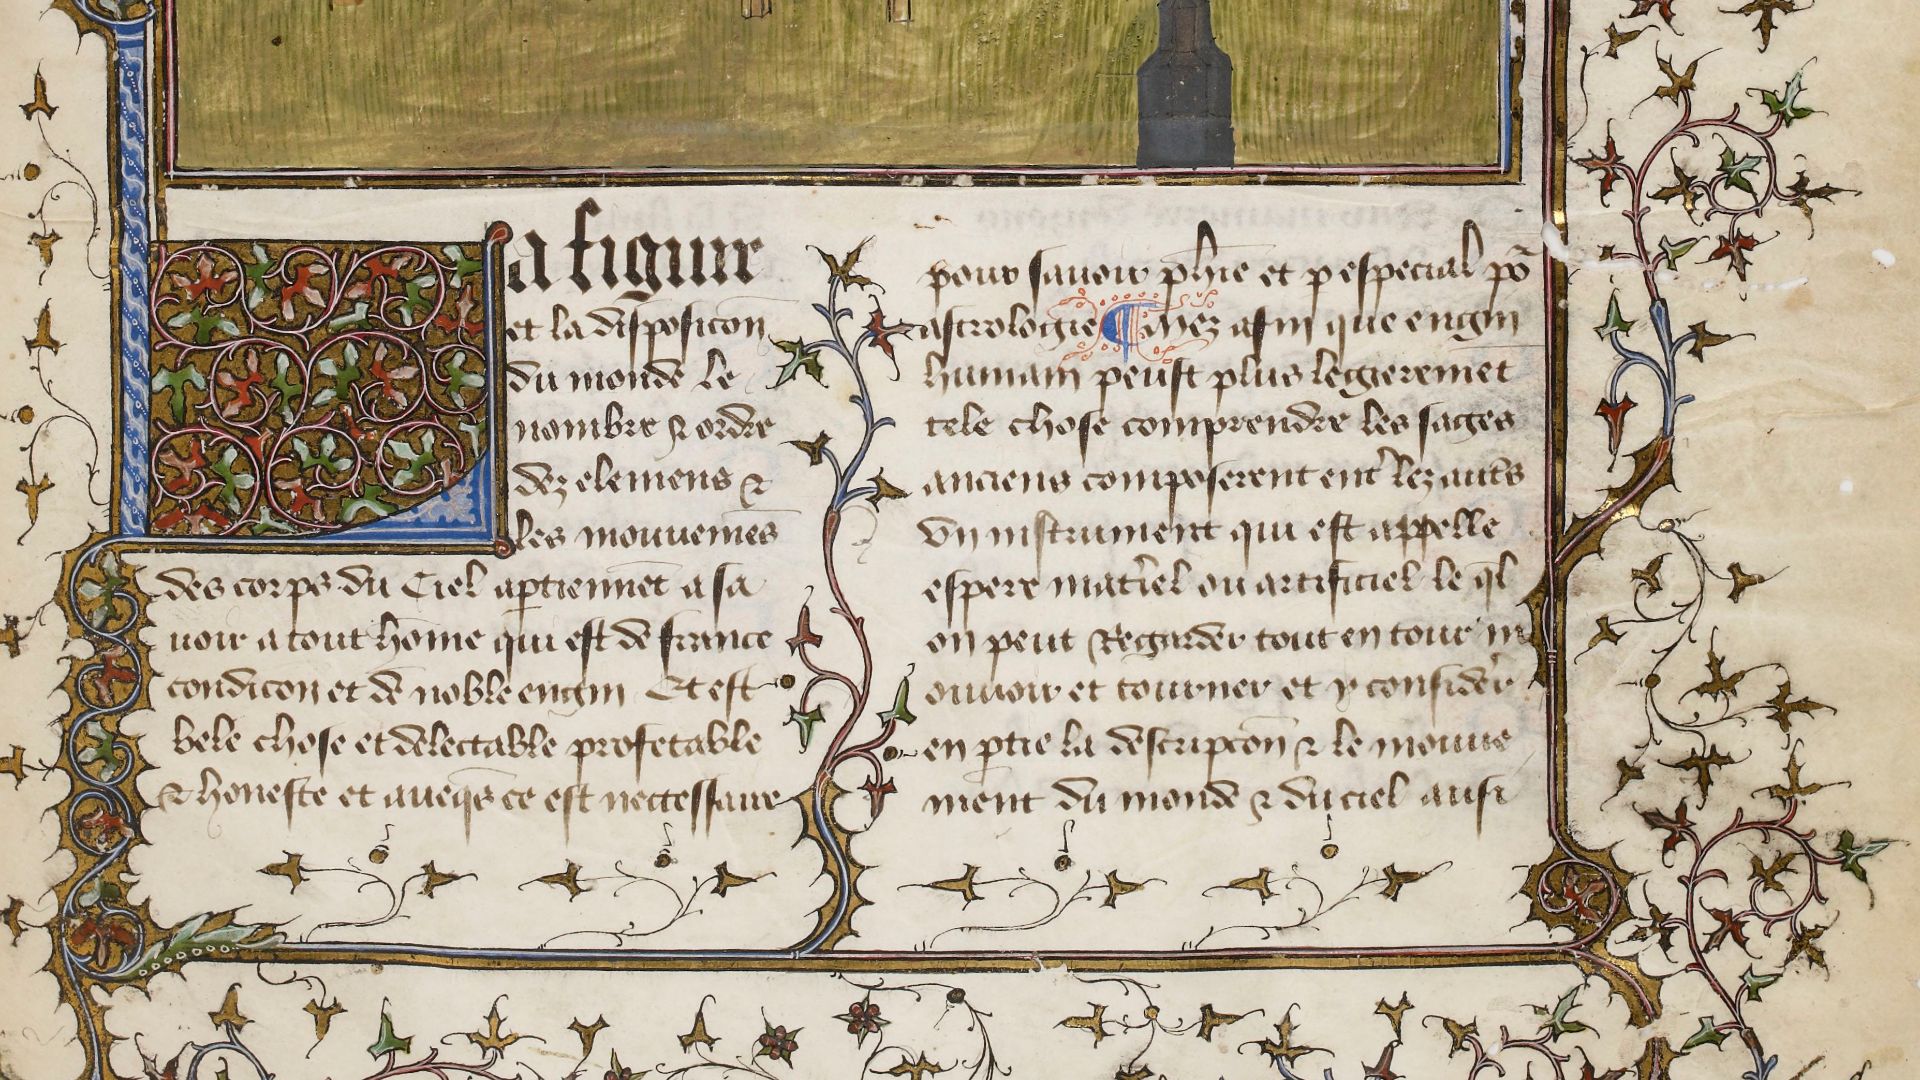 La figure
et la disposicon
du monde le
nombre & ordre
dez elemens &
les mouuemēs
des corps du Ciel aptiennēt a sa
uoir a tout hōme qui est de france
condicon et de noble engin Et est
bele chose et delectable profetable
& honeste et aueqs̄ ce est neccessaire
pour sauoir ph̄ie et p especial po᷑
astrologie ¶ Mez afin que engin
humain peust plus legieremēt
tele chose comprendre les sages
anciens composerent ent' lez aut's
vn instrument qui est appelle
espere mat'iel ou artificiel le q̄l
on peut Regarder tout en tour m
ouuoir et tourner et y consider'
en p̄tie la descripcōn & le mouue
ment du monde & du ciel ausi